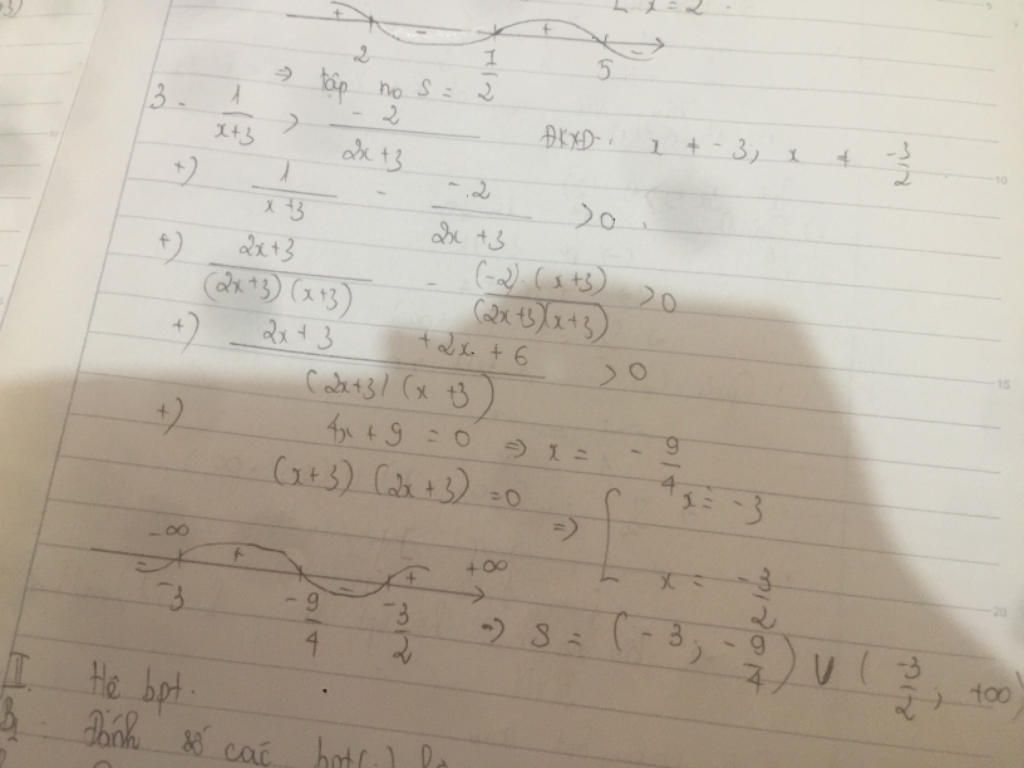 [ x = 2.
+ - + -
2 7/2 5
⇒ tập no S =
3. 1/(x+3) > -2/(2x+3) ĐKXĐ: x ≠ -3, x ≠ -3/2
+) 1/(x+3) - -2/(2x+3) > 0.
+) (2x+3)/((2x+3)(x+3)) - ((-2)(x+3))/((2x+3)(x+3)) > 0
+) (2x+3 +2x + 6)/((2x+3)(x+3)) > 0
+) 4x + 9 = 0 ⇒ x = -9/4
(x+3)(2x+3) = 0 ⇒ [ x = -3
x = -3/2
-∞ - + - + +∞
-3 -9/4 -3/2 ⇒ S = (-3; -9/4) V (-3/2; +∞)
II. Hệ bpt.
B2: Đánh số các bpt(.)
10
15
20